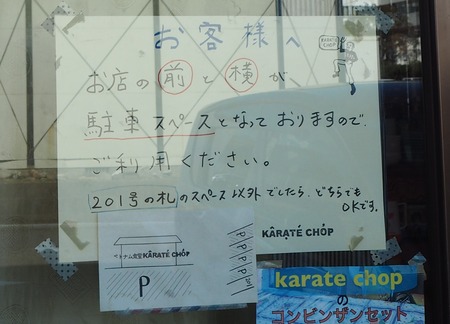 お客様へ
KARATE CHOP
お店の前と横が、
駐車スペースとなっておりますので
ご利用ください。
201号の札のスペース以外でしたら、どちらでも
OKです。
KÂRATÉ CHÓP
ベトナム食堂 KÂRATÉ CHÓP
P
P
P
P
P
karate chop
の
コンビンザンセット